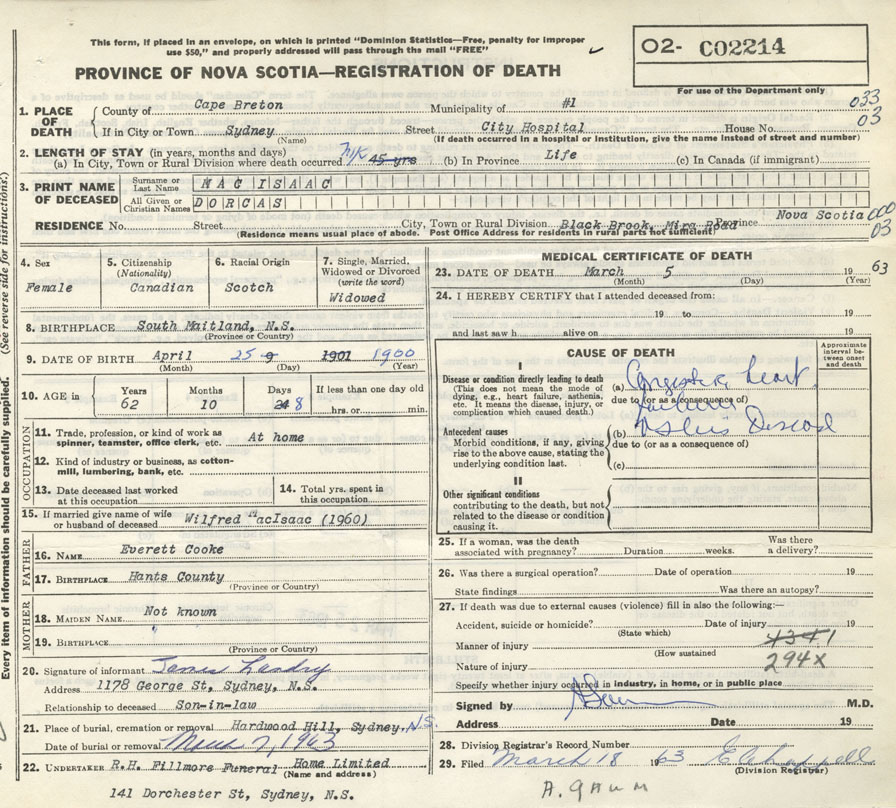 This form, if placed in an envelope, on which is printed "Dominion Statistics—Free, penalty for improper
use $50," and properly addressed will pass through the mail "FREE"
O2- C02214
PROVINCE OF NOVA SCOTIA—REGISTRATION OF DEATH
For use of the Department only
1. PLACE OF DEATH County of Cape Breton Municipality of #1 033
If in City or Town Sydney Street City Hospital House No. 03
(Name) (If death occurred in a hospital or institution, give the name instead of street and number)
2. LENGTH OF STAY (in years, months and days)
(a) In City, Town or Rural Division where death occurred N/K 45 yrs (b) In Province Life (c) In Canada (if immigrant)
3. PRINT NAME OF DECEASED Surname or Last Name MAC ISAAC
All Given or Christian Names DORCAS
RESIDENCE No. Street City, Town or Rural Division Black Brook, Mira Road Province Nova Scotia 000
(Residence means usual place of abode. Post Office Address for residents in rural parts not sufficient) 03
4. Sex Female
5. Citizenship (Nationality) Canadian
6. Racial Origin Scotch
7. Single, Married, Widowed or Divorced (write the word) Widowed
8. BIRTHPLACE South Maitland, N.S.
(Province or Country)
9. DATE OF BIRTH April 25 9 1901 1900
(Month) (Day) (Year)
10. AGE in Years 62 Months 10 Days 24 8 If less than one day old hrs. or min.
OCCUPATION
11. Trade, profession, or kind of work as spinner, teamster, office clerk, etc. At home
12. Kind of industry or business, as cotton-mill, lumbering, bank, etc.
13. Date deceased last worked at this occupation
14. Total yrs. spent in this occupation
15. If married give name of wife or husband of deceased Wilfred MacIsaac (1960)
FATHER
16. NAME Everett Cooke
17. BIRTHPLACE Hants County
(Province or Country)
MOTHER
18. MAIDEN NAME Not known
19. BIRTHPLACE "
(Province or Country)
20. Signature of informant James Landry
Address 1178 George St, Sydney, N.S.
Relationship to deceased Son-in-law
21. Place of burial, cremation or removal Hardwood Hill, Sydney, N.S.
Date of burial or removal March 7, 1963
22. UNDERTAKER R.H. Fillmore Funeral Home Limited
(Name and address)
141 Dorchester St, Sydney, N.S.
MEDICAL CERTIFICATE OF DEATH
23. DATE OF DEATH March 5 1963
(Month) (Day) (Year)
24. I HEREBY CERTIFY that I attended deceased from:
19 to 19
and last saw h alive on 19
CAUSE OF DEATH
Approximate interval between onset and death
I
Disease or condition directly leading to death
(This does not mean the mode of dying, e.g., heart failure, asthenia, etc. It means the disease, injury, or complication which caused death.)
(a) Congestive heart failure
due to (or as a consequence of)
Antecedent causes
Morbid conditions, if any, giving rise to the above cause, stating the underlying condition last.
(b) Disease
due to (or as a consequence of)
(c)
II
Other significant conditions
contributing to the death, but not related to the disease or condition causing it.
25. If a woman, was the death associated with pregnancy? Duration weeks. Was there a delivery?
26. Was there a surgical operation? Date of operation 19
State findings Was there an autopsy?
27. If death was due to external causes (violence) fill in also the following:—
Accident, suicide or homicide? Date of injury 19
(State which)
Manner of injury 4341
(How sustained
Nature of injury 294X
Specify whether injury occurred in industry, in home, or in public place
Signed by M.D.
Address Date 19
28. Division Registrar's Record Number
29. Filed March 18 1963
(Division Registrar)
A. Gaum
Every item of information should be carefully supplied. (See reverse side for instructions.)